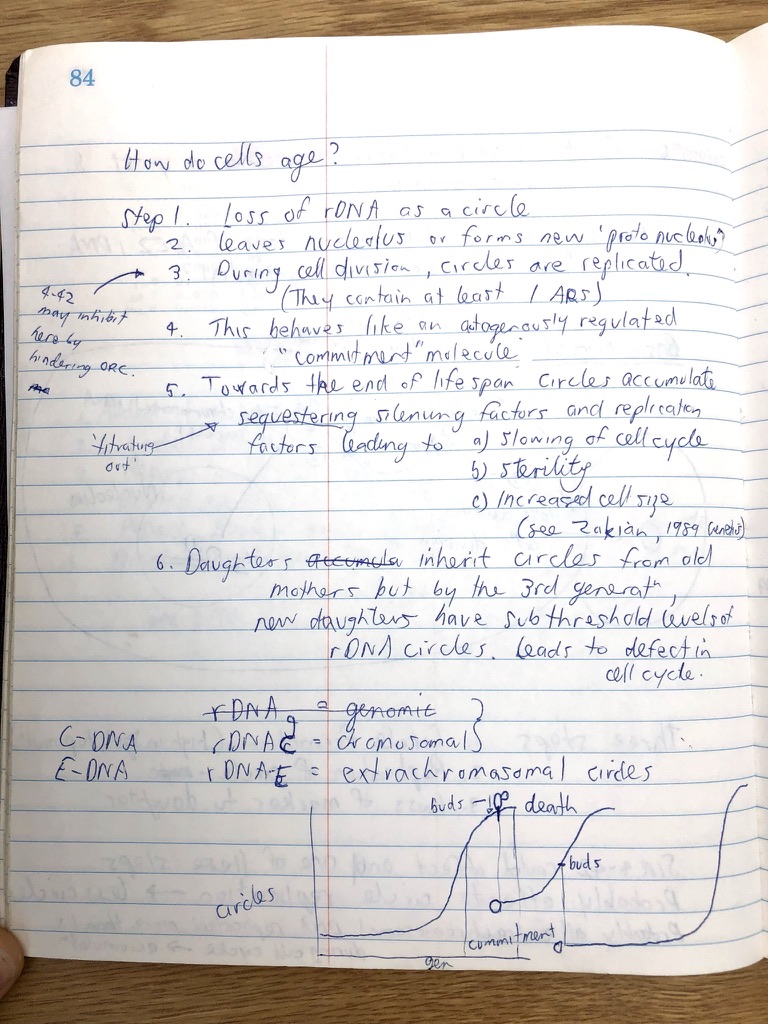 84
How do cells age?
Step 1. Loss of rDNA as a circle
2. leaves nucleolus or forms new 'proto nucleolus'
3. During cell division, circles are replicated.
(They contain at least 1 ARS)
4-42
may inhibit
here by
hindering ORC.
4. This behaves like an autogenously regulated
"commitment" molecule
5. Towards the end of lifespan circles accumulate
sequestering silencing factors and replication
'titrating
out'
factors leading to a) slowing of cell cycle
b) sterility
c) Increased cell size
(see Zakian, 1989 Genetics)
6. Daughters accumula inherit circles from old
mothers but by the 3rd generatn,
new daughters have subthreshold levels of
rDNA circles. Leads to defect in
cell cycle.
rDNAg = genomic }
C-DNA rDNAC = chromosomal }
E-DNA rDNA-E = extrachromasomal circles
buds death
buds
circles
commitment
gen